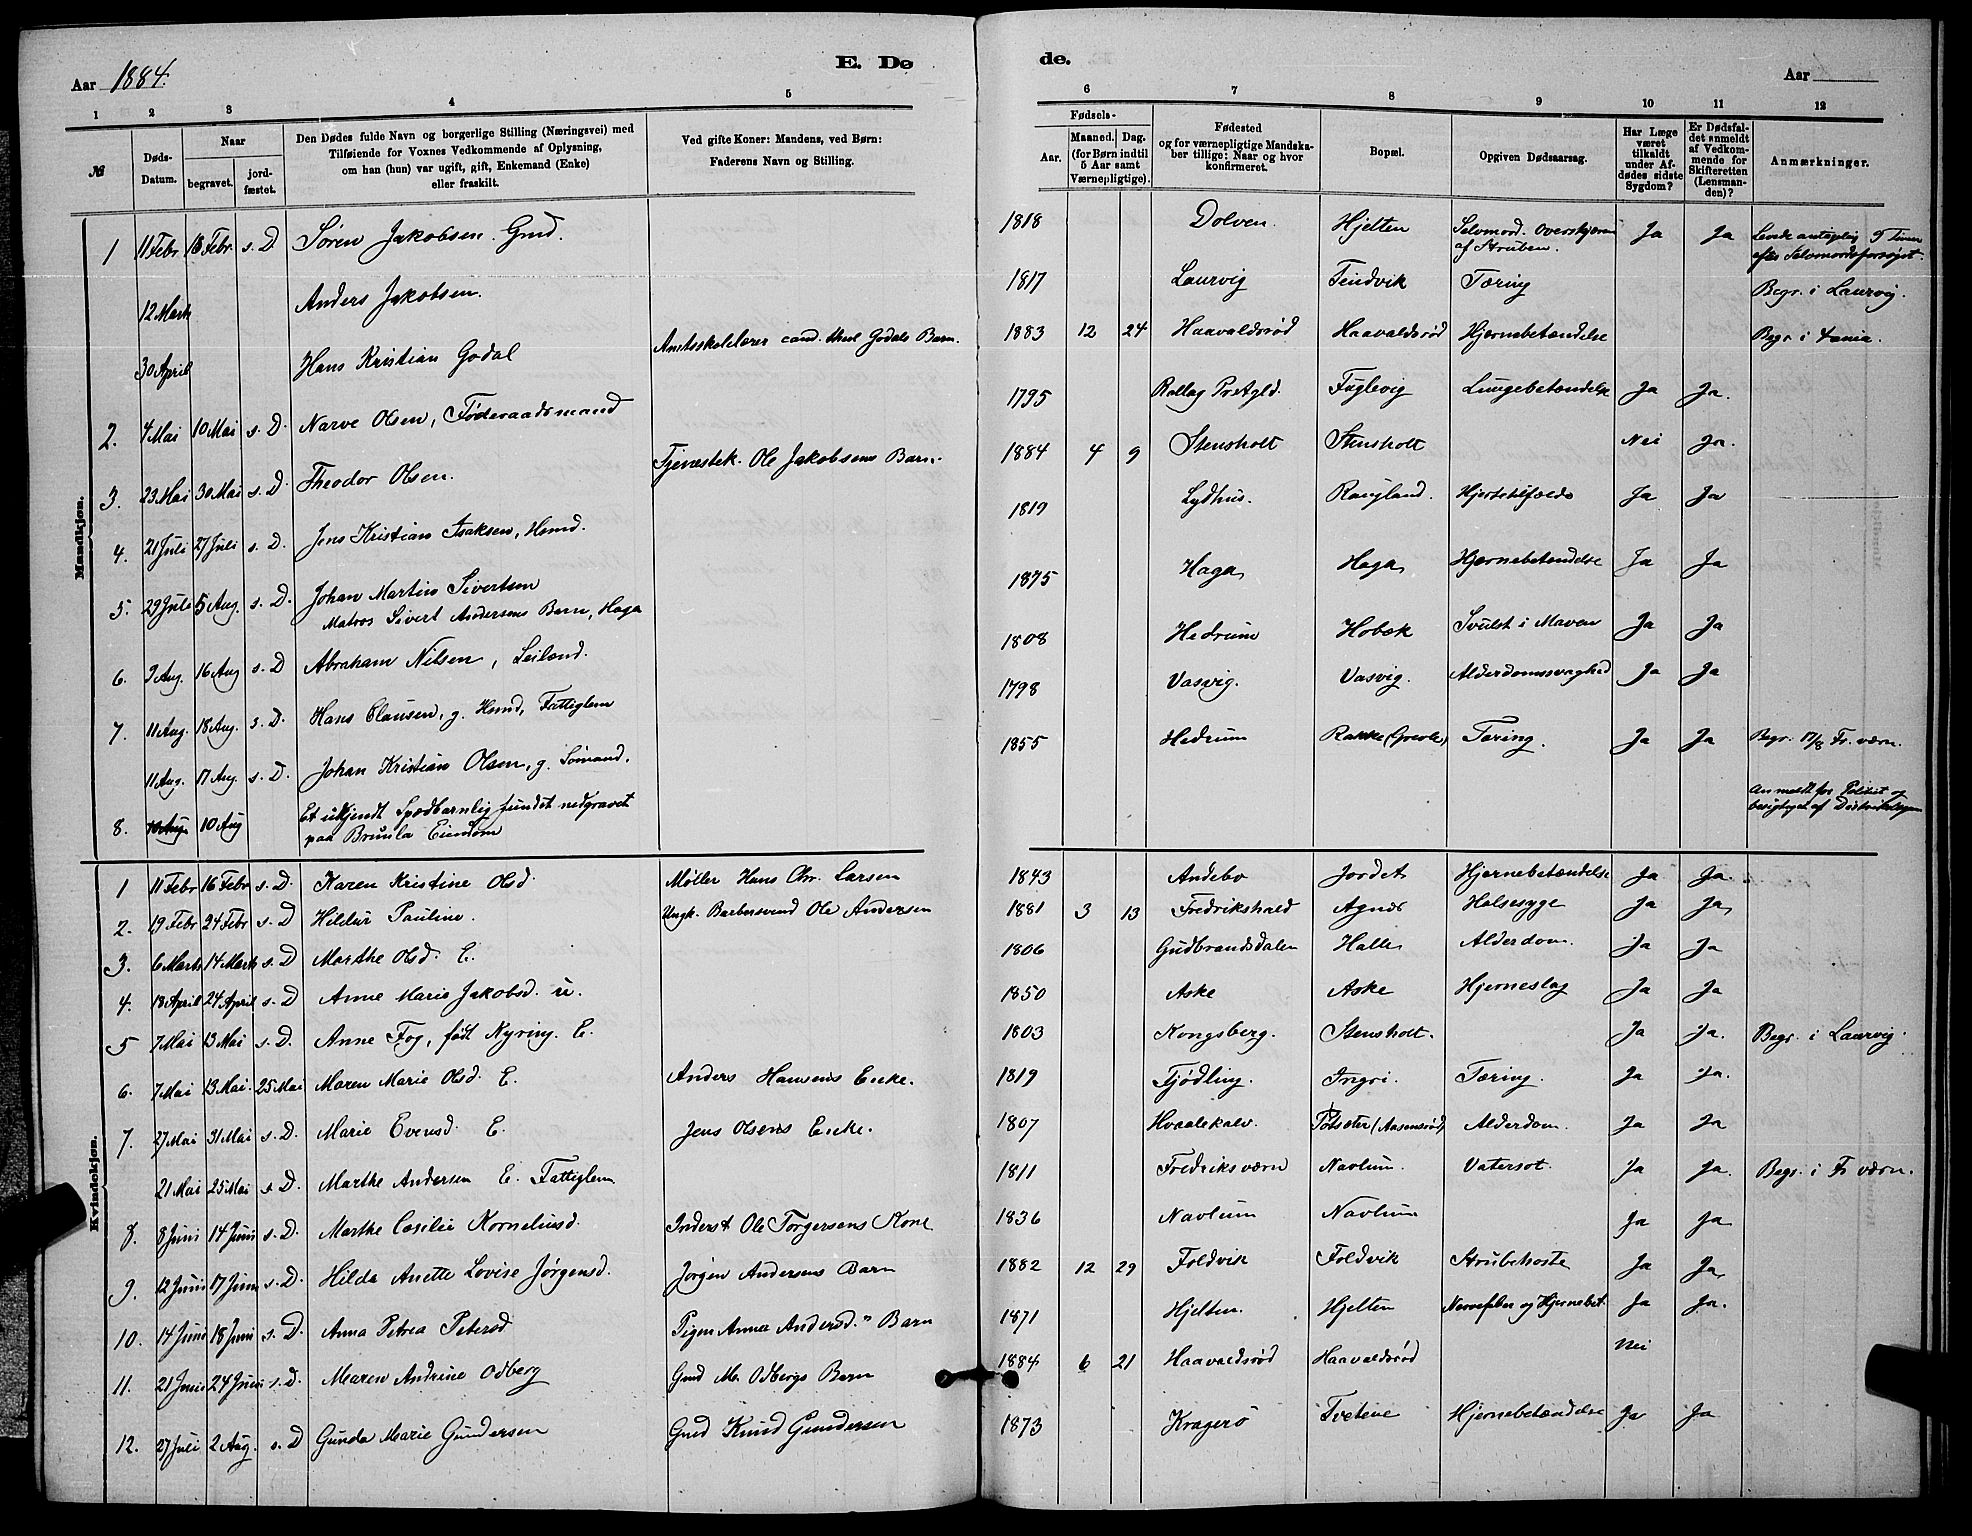 Aar 1884.
E. Dø
1 2 3 4 5
№
Døds-Datum.
Naar
begravet.
jord-fæstet.
Den Dødes fulde Navn og borgerlige Stilling (Næringsvei) med
Tilføiende for Voxnes Vedkommende af Oplysning,
om han (hun) var ugift, gift, Enkemand (Enke)
eller fraskilt.
Ved gifte Koner: Mandens, ved Børn:
Faderens Navn og Stilling.
Mandkjøn.
1 11 Febr 18 Febr. s. D Søren Jakobsen. Gmd.
12 Marts Anders Jakobsen.
30 April Hans Kristian Godal Amtsskolelærer cand. theol Godals Barn.
2. 4 Mai 10 Mai s. D. Narve Olsen, Føderaadsmand
3. 23 Mai 30 Mai s. D Theodor Olsen. Tjenestek. Ole Jakobsens Barn.
4. 21 Juli 27 Juli s. D. Jens Kristian Isaksen, Hsmd.
5. 29 Juli 5 Aug. s. D. Johan Martin Sivertsen
Matros Sivert Andersens Barn, Haga
6. 9 Aug. 16 Aug s. D Abraham Nilsen, Leilænd.
7. 11 Aug. 18 Aug. s. D. Hans Clausen, g. Hsmd, Fattiglem
11 Aug. 17 Aug. s. D. Johan Kristian Olsen, g. Sømand.
8. 10 Aug 10 Aug Et ukjendt Spædbarnlig fundet nedgravet
paa Brunla Eiendom
Kvindekjøn.
1 11 Febr 16 Febr s. D. Karen Kristine Olsd. Møller Hans Chr. Larsen
2. 19 Febr 24 Febr s. D Hildur Pauline. Ungk. Barbersvend Ole Andersen
3. 6 Marts 14 Marts s. D Marthe Olsd. E.
4. 18 April 24 April s. D Anne Marie Jakobsd. u.
5 7 Mai 13 Mai s. D. Anne Fog, født Nyring. E.
6. 7 Mai 13 Mai. 25 Mai Maren Marie Olsd. E. Anders Hansens Enke.
7. 27 Mai 31 Mai s. D. Marie Evensd. E. Jens Olsens Enke.
21 Mai 25 Mai s. D Marthe Andersen E. Fattiglem
8. 8 Juni 14 Juni s. D. Marthe Cæsilie Korneliusd. Inderst Ole Torgersens Kone
9. 12 Juni 17 Juni s. D. Hilda Anette Lovise Jørgensd. Jørgen Andersens Barn
10. 14 Juni 18 Juni s. D. Anna Petrea Petersd Pigen Anna Andersd.s Barn
11. 21 Juni 24 Juni s. D. Maren Andrine Odberg Gmd M. Odbergs Barn
12. 27 Juli 2 Aug. s. D Gunda Marie Gundersen Gmd Knud Gundersen
de.
Aar
6 7 8 9 10 11 12
Fødsels-
Aar.
Maaned. Dag.
(for Børn indtil
5 Aar samt
Værnepligtige).
Fødested
og for værnepligtige Mandska-
ber tillige: Naar og hvor
konfirmeret.
Bopæl.
Opgiven Dødsaarsag.
Har Læge
været
tilkaldt
under Af-
dødes sidste
Sygdom?
Er Dødsfal-
det anmeldt
af Vedkom-
mende for
Skifteretten
(Lensman-
den)?
Anmærkninger.
1818 Dolven. Hjelten Selvmord. Overskjæren
af Struben. Ja Ja Levede antagelig 9 Timer
efter Selvmordsforsøget.
1817 Laurvig Tindvik Tæring Begr. i Laurvig.
1883 12 24 Haavaldsrød Haavaldsrød Hjernebetændelse Begr. i Tanum.
1795 Rollag Prstgld. Fuglevig Lungebetændelse Ja Ja.
1884 4 9 Stensholt Stensholt Nei Ja.
1819 Lydhus. Rangland. Hjertetilfælde Ja Ja
1875 Haga Haga Hjernebetændelse Ja Ja
1808 Hedrum Hobæk Svulst i Maven Ja Ja
1798 Vasvig. Vasvig. Alderdomssvaghed Ja Ja
1855 Hedrum Rakke (Grevle) Tæring. Ja Ja Begr. 17/8 Fr. værn.
Anmeldt for Politiet og
besigtiget af Distriktslægen
1843 Andebo Jordet Hjernebetændelse Ja Ja.
1881 3 13 Fredrikshald Agnæs Halsesyge Ja Ja
1806 Gudbrandsdalen Halle Alderdom. Ja Ja
1850 Aske Aske Hjerneslag Ja Ja
1803 Kongsberg. Stensholt. Ja Ja. Begr. i Laurvig.
1819 Tjødling. Ingri. Tæring. Ja Ja.
1807 Hvaalekalv. (Aasensrød) Alderdom. Ja Ja
1811 Fredriksværn Navlum. Vatersot. Ja Ja. Begr. i Fr værn.
1836 Navlum Navlum Ja Ja
1882 12 29 Foldvik Foldvik Strubehoste Ja Ja
1871 Hjelten. Hjelten Nervefeber og Hjernebet. Ja Ja.
1884 6 21 Haavaldsrød Haavaldsrød Nei
1873 Kragerø Tvetene Hjernebetændelse Ja Ja